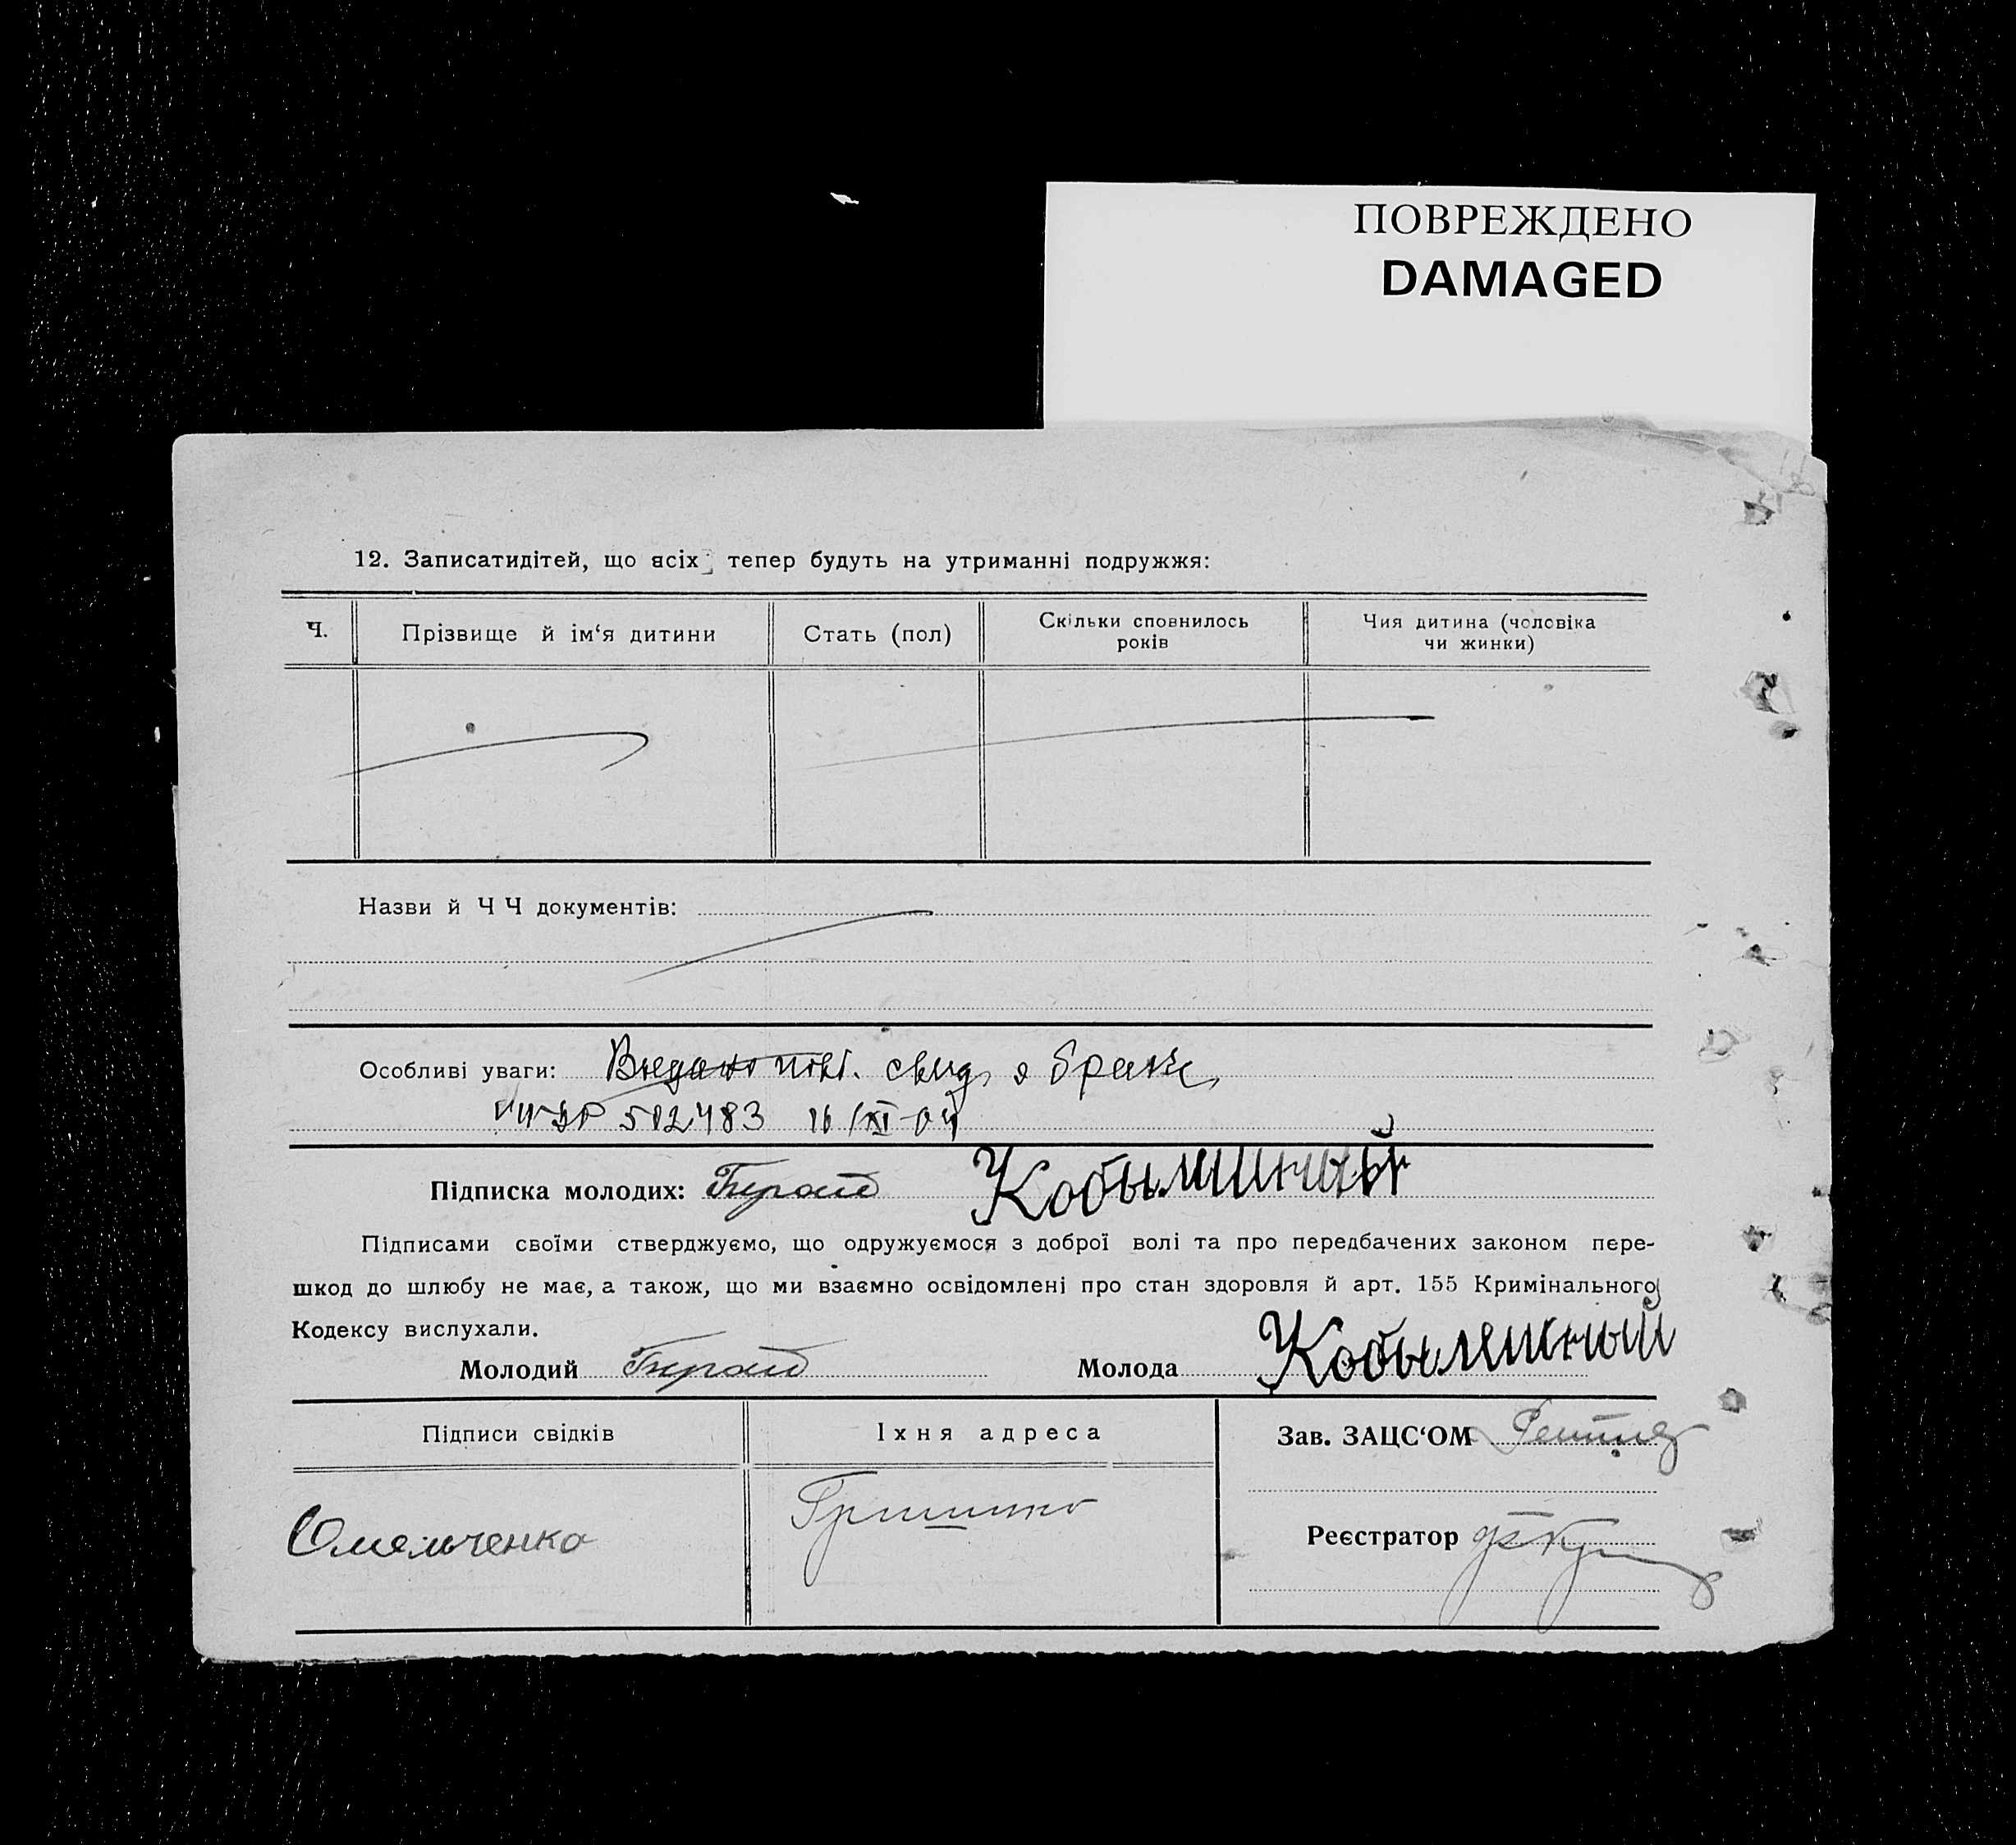 ПОВРЕЖДЕНО
DAMAGED
12. Записатидітей, що всіх тепер будуть на утриманні подружжя:
Ч.
Прізвище й ім‘я дитини
Стать (пол)
Скільки сповнилось
років
Чия дитина (чоловіка
чи жинки)
Назви й Ч Ч документів:
Особливі уваги: свид о браке
502483 16/XI-
Підписка молодих:
Підписами своїми стверджуємо, що одружуємося з доброї волі та про передбачених законом пере-
шкод до шлюбу не має, а також, що ми взаємно освідомлені про стан здоровля й арт. 155 Кримінального
Кодексу вислухали.
Молодий
Молода
Підписи свідків
Їхня адреса
Зав. ЗАЦС‘ОМ
Омельченко
Реєстратор